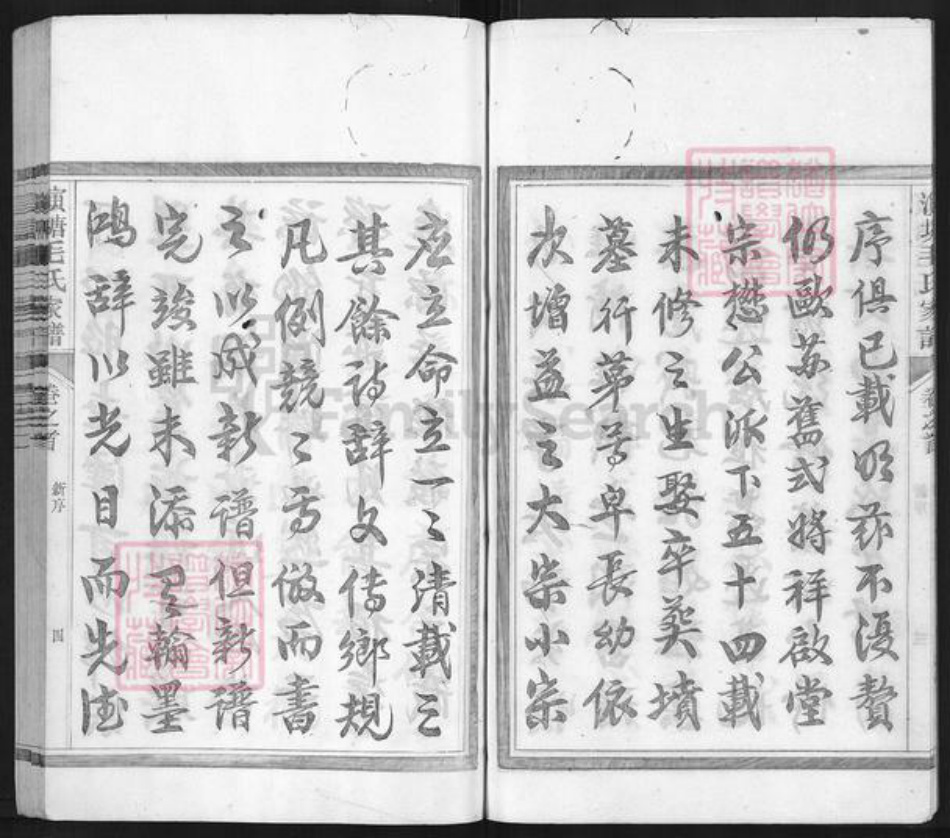 序俱已載明茲不復贅
仍歐蘇舊式將祥啟堂
宗懋公派下五十四載
未修之生娶卒葬墳
墓行苐尊卑長幼依
次增益之大宗小宗
應立命立一々清載之
其餘詩辭文傳鄉規
凡例競々焉倣而書
之以成新譜但新譜
完竣雖未添翰墨
鴻辭以光目而先德
演塘毛氏家譜
卷之首
新序
四
FamilySearch